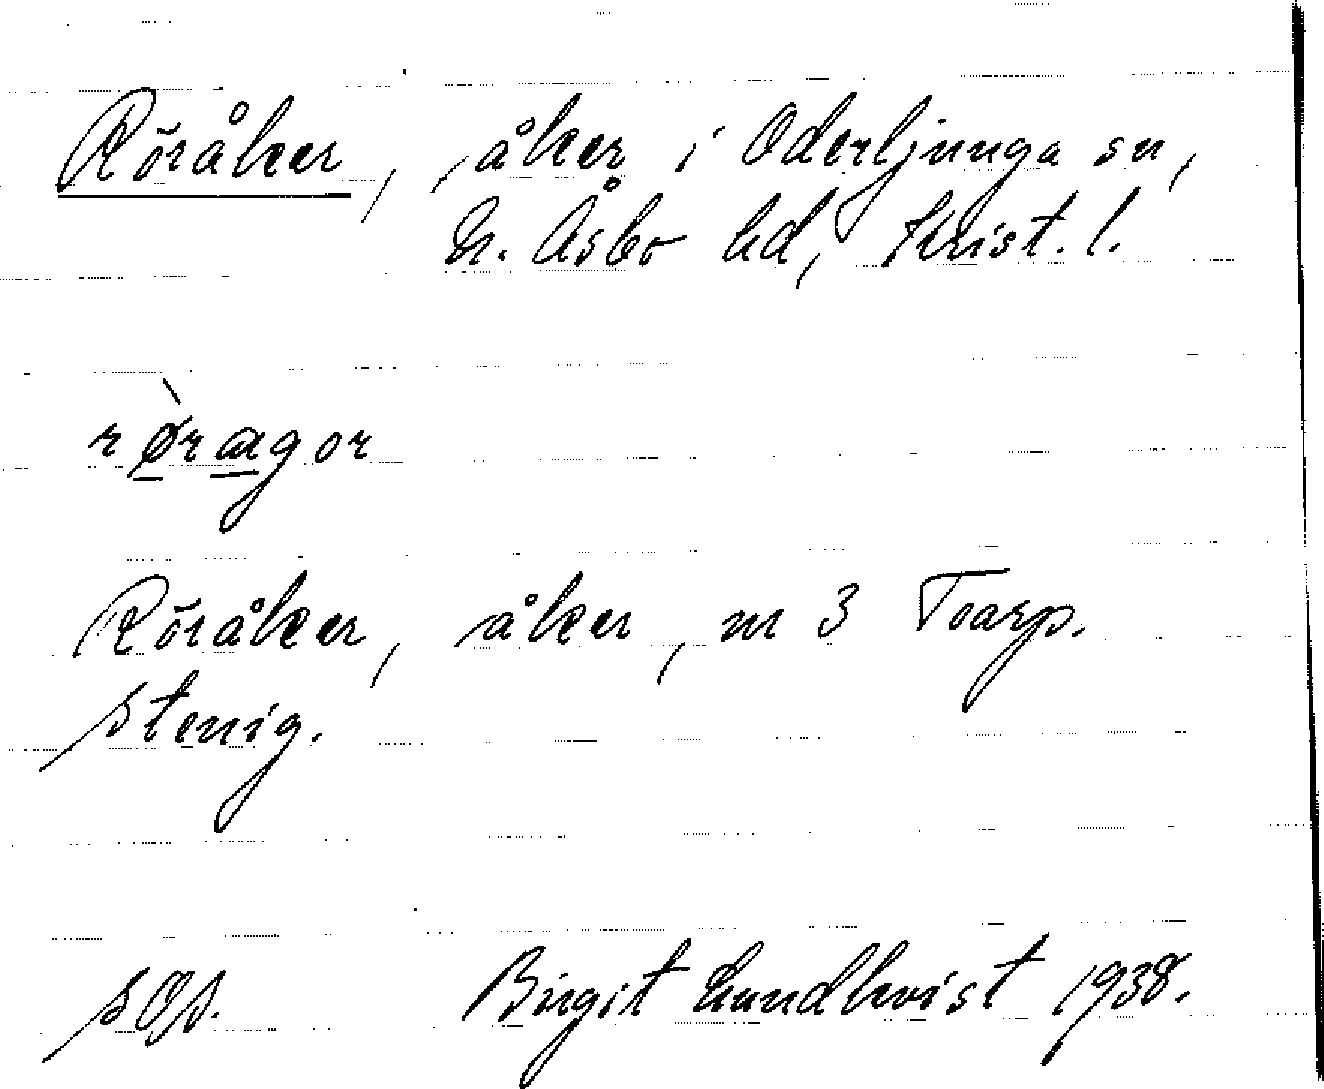 Röråker, åker i Oderljunga sn,
N. Åsbo hd, Krist. l.
rø̀rægor
Röråker, åker, nr 3 Toarp.
Stenig.
Birgit Lundkvist 1938.